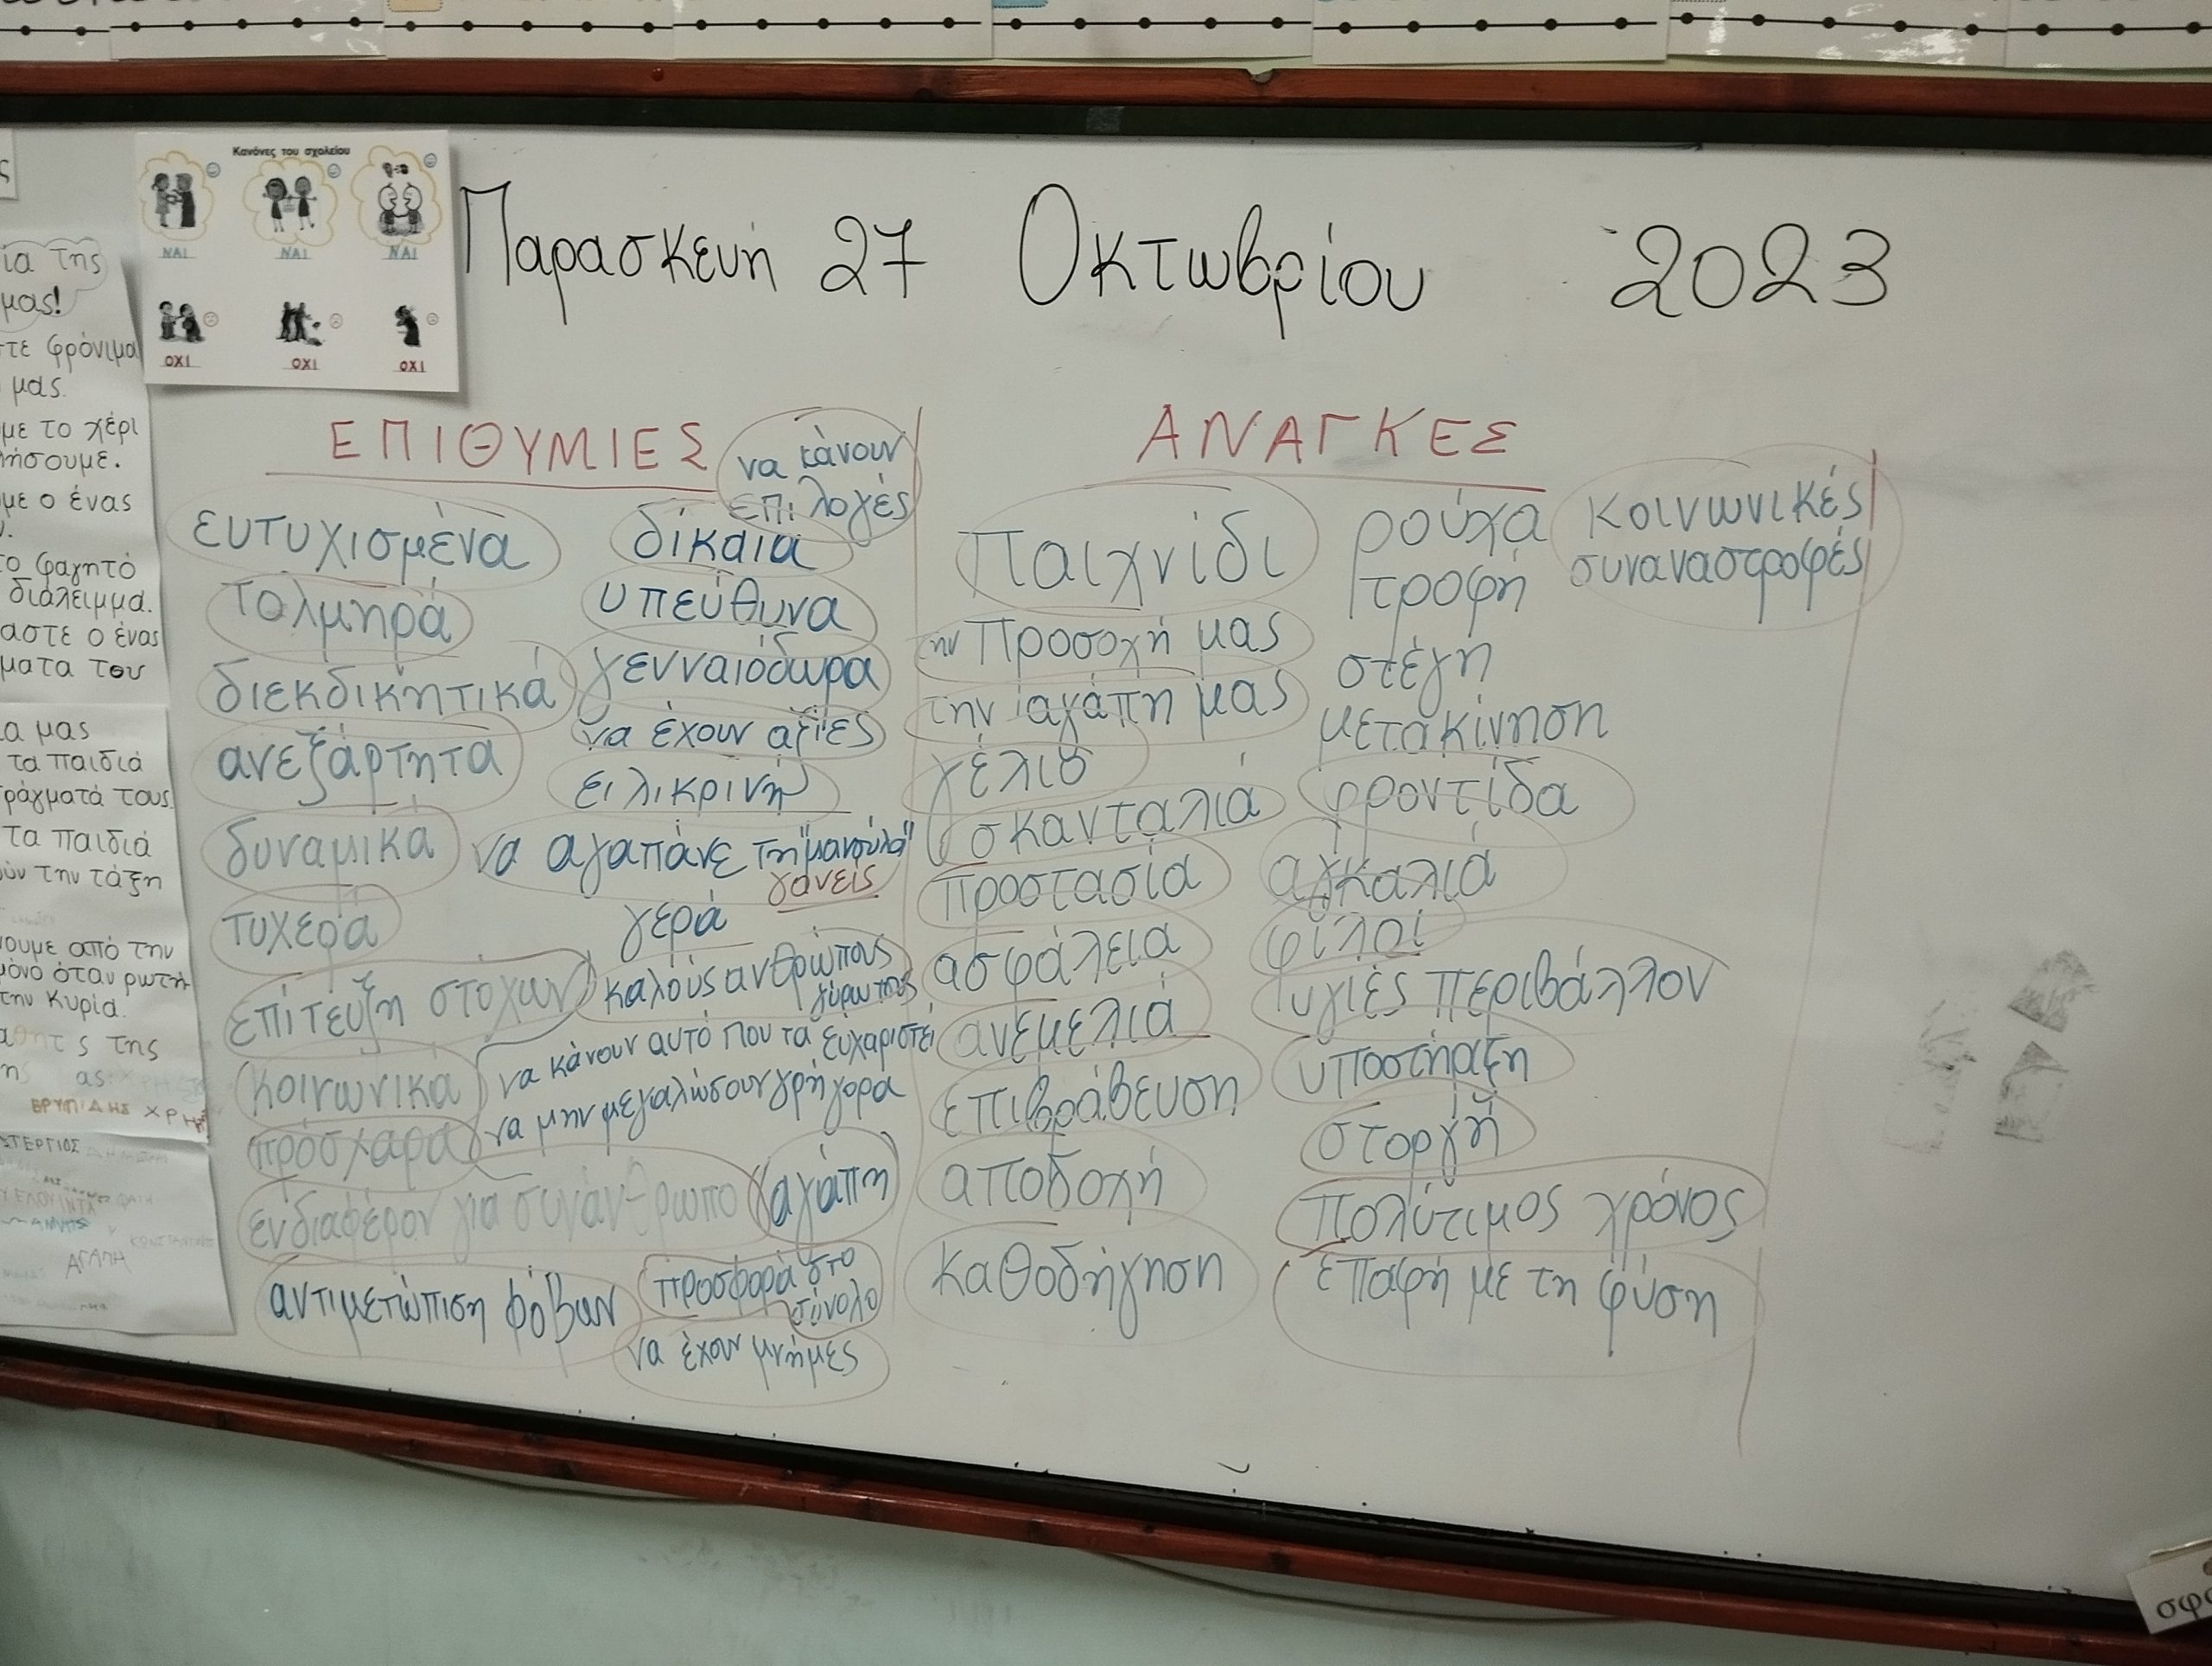 Κανόνες του σχολείου
ΝΑΙ ΝΑΙ ΝΑΙ
ΟΧΙ ΟΧΙ ΟΧΙ
Παρασκευή 27 Οκτωβρίου 2023
ΕΠΙΘΥΜΙΕΣ
να κάνουν
επιλογές
ευτυχισμένα
τολμηρά
διεκδικητικά
ανεξάρτητα
δυναμικά
τυχερά
επίτευξη στόχων
κοινωνικά
πρόσχαρα
ενδιαφέρον για συνάνθρωπο
αντιμετώπιση φόβων
δίκαια
υπεύθυνα
γενναιόδωρα
να έχουν αξίες
ειλικρινή
να αγαπάνε τη "μανούλα"
γονείς
γερά
καλούς ανθρώπους
γύρω τους
να κάνουν αυτό που τα ευχαριστεί
να μην μεγαλώσουν γρήγορα
αγάπη
προσφορά στο
σύνολο
να έχουν μνήμες
ΑΝΑΓΚΕΣ
Παιχνίδι
την Προσοχή μας
την αγάπη μας
γέλιο
σκανταλιά
προστασία
ασφάλεια
ανεμελιά
επιβράβευση
αποδοχή
καθοδήγηση
ρούχα
τροφή
στέγη
μετακίνηση
φροντίδα
αγκαλιά
φίλοι
υγιές περιβάλλον
υποστήριξη
στοργή
πολύτιμος χρόνος
επαφή με τη φύση
κοινωνικές
συναναστροφές
της
μας!
φρόνιμα
μας.
με το χέρι
με ο ένας
το φαγητό
διάλειμμα.
ο ένας
του
μας
τα παιδιά
τους.
τα παιδιά
την τάξη
από την
μόνο όταν
την Κυρία.
της
ΑΓΑΠΗ